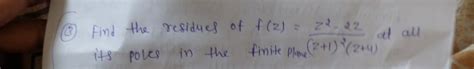 ③ Find the residues of f(z) = z² - 2z / (z+1)²(z+4) at all
its poles in the finite plane